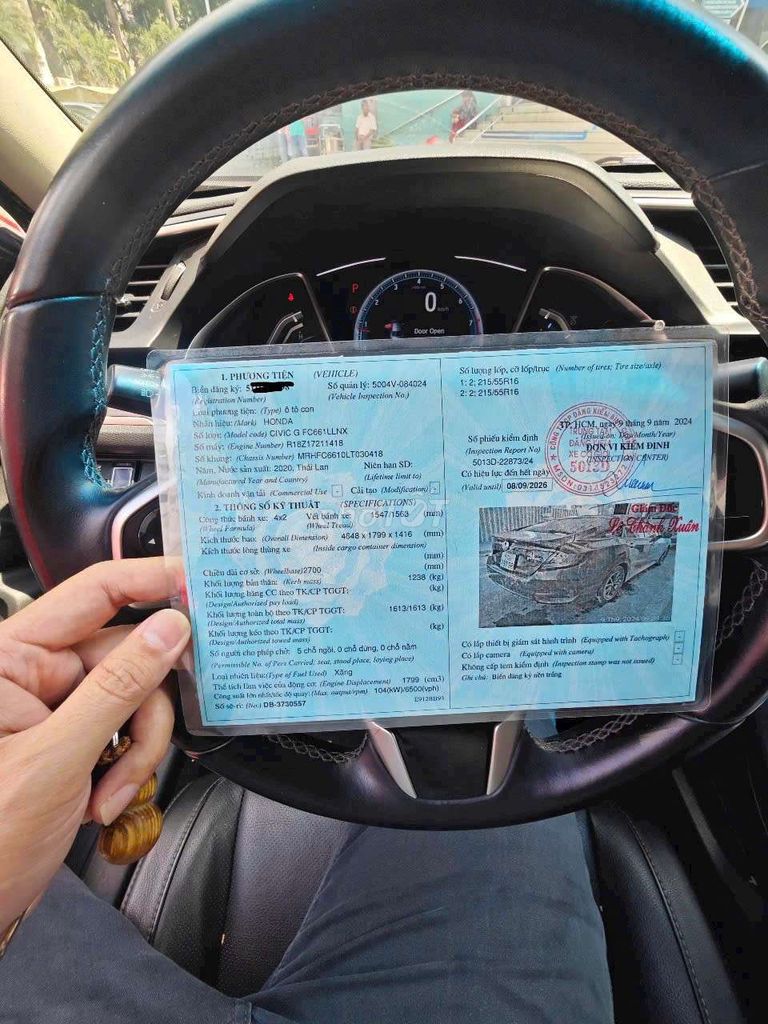 P
2
3
4
5
6
7
0
km/h
Door Open
1. PHƯƠNG TIỆN (VEHICLE)
Biển đăng ký: 5
Số quản lý: 5004V-084024
(Registration Number) (Vehicle Inspection No.)
Loại phương tiện: (Type) ô tô con
Nhãn hiệu: (Mark) HONDA
Số loại: (Model code) CIVIC G FC661LLNX
Số máy: (Engine Number) R18Z17211418
Số khung: (Chassis Number) MRHFC6610LT030418
Năm, Nước sản xuất: 2020, Thái Lan Niên hạn SD:
(Manufactured Year and Country) (Lifetime limit to)
Kinh doanh vận tải (Commercial Use) - Cải tạo (Modification) -
2. THÔNG SỐ KỸ THUẬT (SPECIFICATIONS)
Công thức bánh xe: 4x2 Vết bánh xe: 1547/1563 (mm)
(Wheel Formula) (Wheel Tread)
Kích thước bao: (Overall Dimension) 4648 x 1799 x 1416 (mm)
Kích thước lòng thùng xe (Inside cargo container dimension)
(mm)
Chiều dài cơ sở: (Wheelbase) 2700 (mm)
Khối lượng bản thân: (Kerb mass) 1238 (kg)
Khối lượng hàng CC theo TK/CP TGGT: (kg)
(Design/Authorized pay load)
Khối lượng toàn bộ theo TK/CP TGGT: 1613/1613 (kg)
(Design/Authorized total mass)
Khối lượng kéo theo TK/CP TGGT: (kg)
(Design/Authorized towed mass)
Số người cho phép chở: 5 chỗ ngồi, 0 chỗ đứng, 0 chỗ nằm
(Permissible No. of Pers Carried: seat, stood place, laying place)
Loại nhiên liệu: (Type of Fuel Used) Xăng
Thể tích làm việc của động cơ: (Engine Displacement) 1799 (cm3)
Công suất lớn nhất/tốc độ quay: (Max. output/rpm) 104(kW)/6500(vph)
Số sê-ri: (No.) DB-3730557
Số lượng lốp, cỡ lốp/trục (Number of tires; Tire size/axle)
1: 2; 215/55R16
2: 2; 215/55R16
TP. HCM, ngày 9 tháng 9 năm 2024
(Issued on: Day/Month/Year)
Số phiếu kiểm định ĐƠN VỊ KIỂM ĐỊNH
(Inspection Report No) (INSPECTION CENTER)
5013D-22873/24
Có hiệu lực đến hết ngày
(Valid until) 08/09/2026
5013D
Giám Đốc
Lê Thành Xuân
Có lắp thiết bị giám sát hành trình (Equipped with Tachograph) -
Có lắp camera (Equipped with camera) -
Không cấp tem kiểm định (Inspection stamp was not issued) -
Ghi chú: Biển đăng ký nền trắng